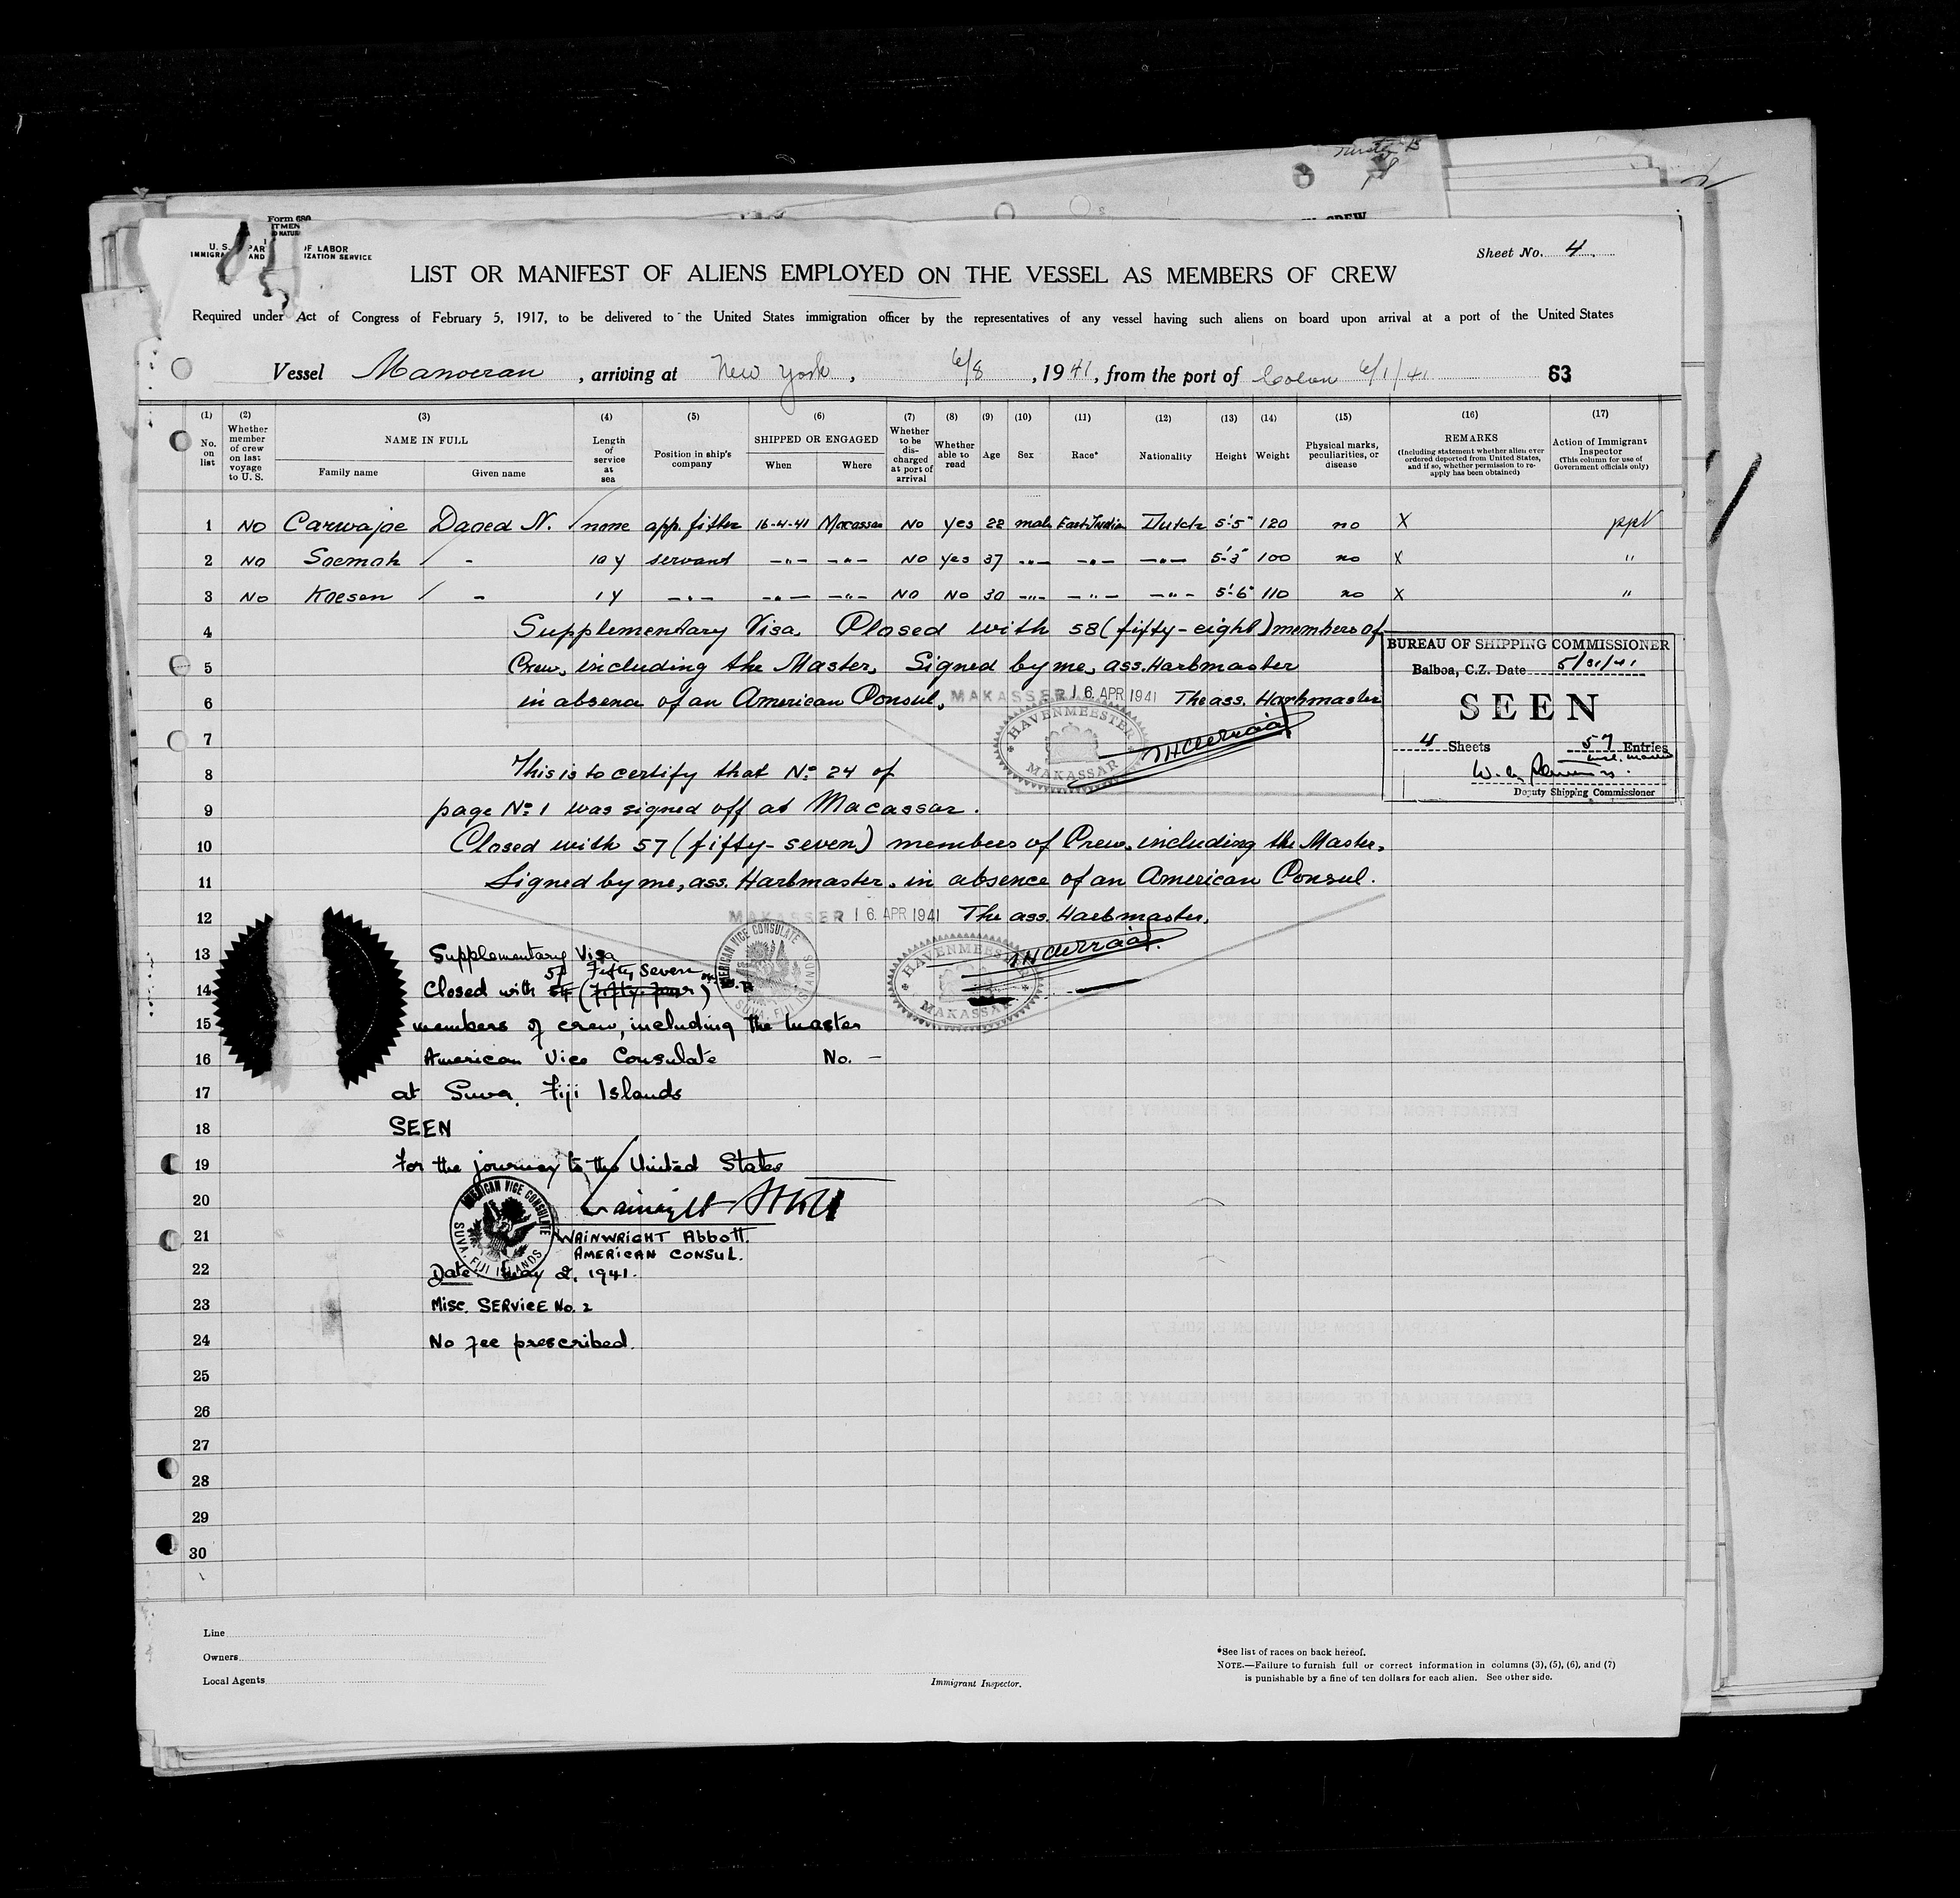 Form 680
U. S. DEPARTMENT OF LABOR
IMMIGRATION AND NATURALIZATION SERVICE
Sheet No. 4
LIST OR MANIFEST OF ALIENS EMPLOYED ON THE VESSEL AS MEMBERS OF CREW
Required under Act of Congress of February 5, 1917, to be delivered to the United States immigration officer by the representatives of any vessel having such aliens on board upon arrival at a port of the United States
Vessel Manoeran, arriving at New York, 6/8, 1941, from the port of Colon 6/1/41 63
(1) No. on list
(2) Whether member of crew on last voyage to U. S.
(3) NAME IN FULL Family name Given name
(4) Length of service at sea
(5) Position in ship's company
(6) SHIPPED OR ENGAGED When Where
(7) Whether to be discharged at port of arrival
(8) Whether able to read
(9) Age
(10) Sex
(11) Race*
(12) Nationality
(13) Height
(14) Weight
(15) Physical marks, peculiarities, or disease
(16) REMARKS (Including statement whether alien ever ordered deported from United States, and if so, whether permission to reapply has been obtained)
(17) Action of Immigrant Inspector (This column for use of Government officials only)
1 No Carwajoe Daoed N. none app. fitter 16-4-41 Macassar No yes 22 male East Indian Dutch 5'-5" 120 no X ppt
2 No Soemoh - 10 y servant -"- -"- No yes 37 -"- -"- -"- 5'-3" 100 no X "
3 No Koesen - 1 y -"- -"- -"- No No 30 -"- -"- -"- 5'-6" 110 no X "
4 Supplementary Visa. Closed with 58 (fifty-eight) members of
5 Crew, including the Master. Signed by me, ass. Harbmaster
6 in absence of an American Consul. MAKASSER 16 APR 1941 The ass. Harbmaster
7
HAVENMEESTER MAKASSAR
8 This is to certify that No: 24 of
9 page No: 1 was signed off at Macassar.
10 Closed with 57 (fifty-seven) members of Crew, including the Master.
11 Signed by me, ass. Harbmaster, in absence of an American Consul.
12 MAKASSER 16 APR 1941 The ass. Harbmaster.
BUREAU OF SHIPPING COMMISSIONER
Balboa, C.Z. Date 5/31/41
SEEN
4 Sheets 57 Entries
incl. master
Deputy Shipping Commissioner
AMERICAN VICE CONSULATE SUVA, FIJI ISLANDS
HAVENMEESTER MAKASSAR
13 Supplementary Visa
57 Fifty seven
14 Closed with 54 (Fifty-four)
15 members of crew, including the Master
16 American Vice Consulate No. -
17 at Suva, Fiji Islands
18 SEEN
19 For the journey to the United States
20 Wainwright Abbott
21 WAINWRIGHT Abbott.
AMERICAN CONSUL.
AMERICAN VICE CONSULATE SUVA, FIJI ISLANDS
22 Date May 2, 1941.
23 Misc. SERVICE No. 2
24 No fee prescribed.
25
26
27
28
29
30
Line
Owners
Local Agents
Immigrant Inspector.
*See list of races on back hereof.
NOTE.—Failure to furnish full or correct information in columns (3), (5), (6), and (7)
is punishable by a fine of ten dollars for each alien. See other side.